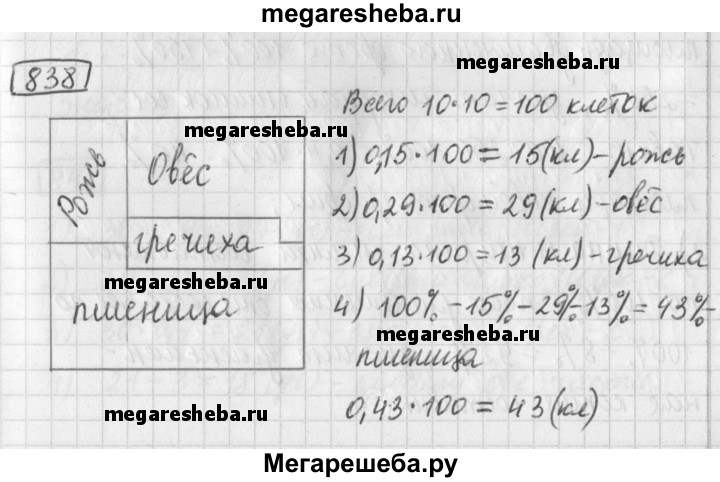 megaresheba.ru
838
megaresheba.ru
Всего 10·10=100 клеток
megaresheba.ru
Рожь
Овёс
гречиха
megaresheba.ru
пшеница
1) 0,15·100=15(кл)-рожь
2) 0,29·100=29(кл)-овёс
3) 0,13·100=13 (кл)-гречиха
4) 100%-15%-29%-13%=43%-
megaresheba.ru
пшеница
0,43·100=43(кл)
megaresheba.ru
Мегарешеба.ру